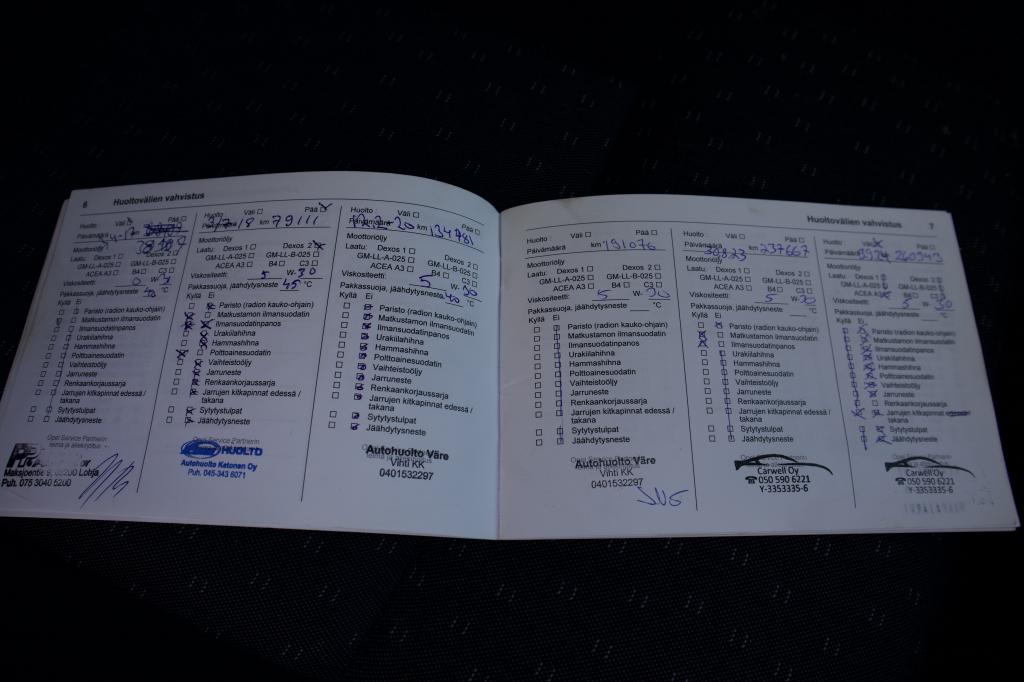 6 Huoltovälien vahvistus
Huolto Väli Pää
Päivämäärä
Moottoriöljy
Laatu: Dexos 1 Dexos 2
GM-LL-A-025 GM-LL-B-025
ACEA A3 B4 C3
Viskositeetti: W-
Pakkassuoja, jäähdytysneste °C
Kyllä Ei
Paristo (radion kauko-ohjain)
Matkustamon ilmansuodatin
Ilmansuodatinpanos
Urakiilahihna
Hammashihna
Polttoainesuodatin
Vaihteistoöljy
Jarruneste
Renkaankorjaussarja
Jarrujen kitkapinnat edessä /
takana
Sytytystulpat
Jäähdytysneste
Opel Service Partnerin
leima ja allekirjoitus
Lohja
Puh. 075 3040 5200
Huolto Väli Pää
Päivämäärä km 79111
Moottoriöljy
Laatu: Dexos 1 Dexos 2
GM-LL-A-025 GM-LL-B-025
ACEA A3 B4 C3
Viskositeetti: 5 W-30
Pakkassuoja, jäähdytysneste 45 °C
Kyllä Ei
Paristo (radion kauko-ohjain)
Matkustamon ilmansuodatin
Ilmansuodatinpanos
Urakiilahihna
Hammashihna
Polttoainesuodatin
Vaihteistoöljy
Jarruneste
Renkaankorjaussarja
Jarrujen kitkapinnat edessä /
takana
Sytytystulpat
Jäähdytysneste
Opel Service Partnerin
HUOLTO
Autohuolto Ketonen Oy
Puh. 045-343 6071
Huolto Väli Pää
Päivämäärä km 134781
Moottoriöljy
Laatu: Dexos 1 Dexos 2
GM-LL-A-025 GM-LL-B-025
ACEA A3 B4 C3
Viskositeetti: 5 W-30
Pakkassuoja, jäähdytysneste -40 °C
Kyllä Ei
Paristo (radion kauko-ohjain)
Matkustamon ilmansuodatin
Ilmansuodatinpanos
Urakiilahihna
Hammashihna
Polttoainesuodatin
Vaihteistoöljy
Jarruneste
Renkaankorjaussarja
Jarrujen kitkapinnat edessä /
takana
Sytytystulpat
Jäähdytysneste
Autohuolto Väre
Vihti KK
0401532297
Huoltovälien vahvistus 7
Huolto : Väli Pää
Päivämäärä km 191076
Moottoriöljy
Laatu: Dexos 1 Dexos 2
GM-LL-A-025 GM-LL-B-025
ACEA A3 B4 C3
Viskositeetti: 5 W-30
Pakkassuoja, jäähdytysneste °C
Kyllä Ei
Paristo (radion kauko-ohjain)
Matkustamon ilmansuodatin
Ilmansuodatinpanos
Urakiilahihna
Hammashihna
Polttoainesuodatin
Vaihteistoöljy
Jarruneste
Renkaankorjaussarja
Jarrujen kitkapinnat edessä /
takana
Sytytystulpat
Jäähdytysneste
Autohuolto Väre
Vihti KK
0401532297
Huolto : Väli Pää
Päivämäärä 30823 km 237667
Moottoriöljy
Laatu: Dexos 1 Dexos 2
GM-LL-A-025 GM-LL-B-025
ACEA A3 B4 C3
Viskositeetti: 5 W-30
Pakkassuoja, jäähdytysneste °C
Kyllä Ei
Paristo (radion kauko-ohjain)
Matkustamon ilmansuodatin
Ilmansuodatinpanos
Urakiilahihna
Hammashihna
Polttoainesuodatin
Vaihteistoöljy
Jarruneste
Renkaankorjaussarja
Jarrujen kitkapinnat edessä /
takana
Sytytystulpat
Jäähdytysneste
Carwell Oy
☎ 050 590 6221
Y-3353335-6
Huolto : Väli Pää
Päivämäärä
Moottoriöljy
Laatu: Dexos 1 Dexos 2
GM-LL-A-025 GM-LL-B-025
ACEA A3 B4 C3
Viskositeetti: 5 W-30
Pakkassuoja, jäähdytysneste °C
Kyllä Ei
Paristo (radion kauko-ohjain)
Matkustamon ilmansuodatin
Ilmansuodatinpanos
Urakiilahihna
Hammashihna
Polttoainesuodatin
Vaihteistoöljy
Jarruneste
Renkaankorjaussarja
Jarrujen kitkapinnat edessä /
takana
Sytytystulpat
Jäähdytysneste
Carwell Oy
☎ 050 590 6221
Y-3353335-6